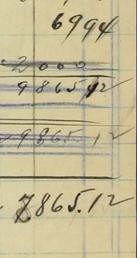 6994
2000
9865.12
9865.12
7865.12